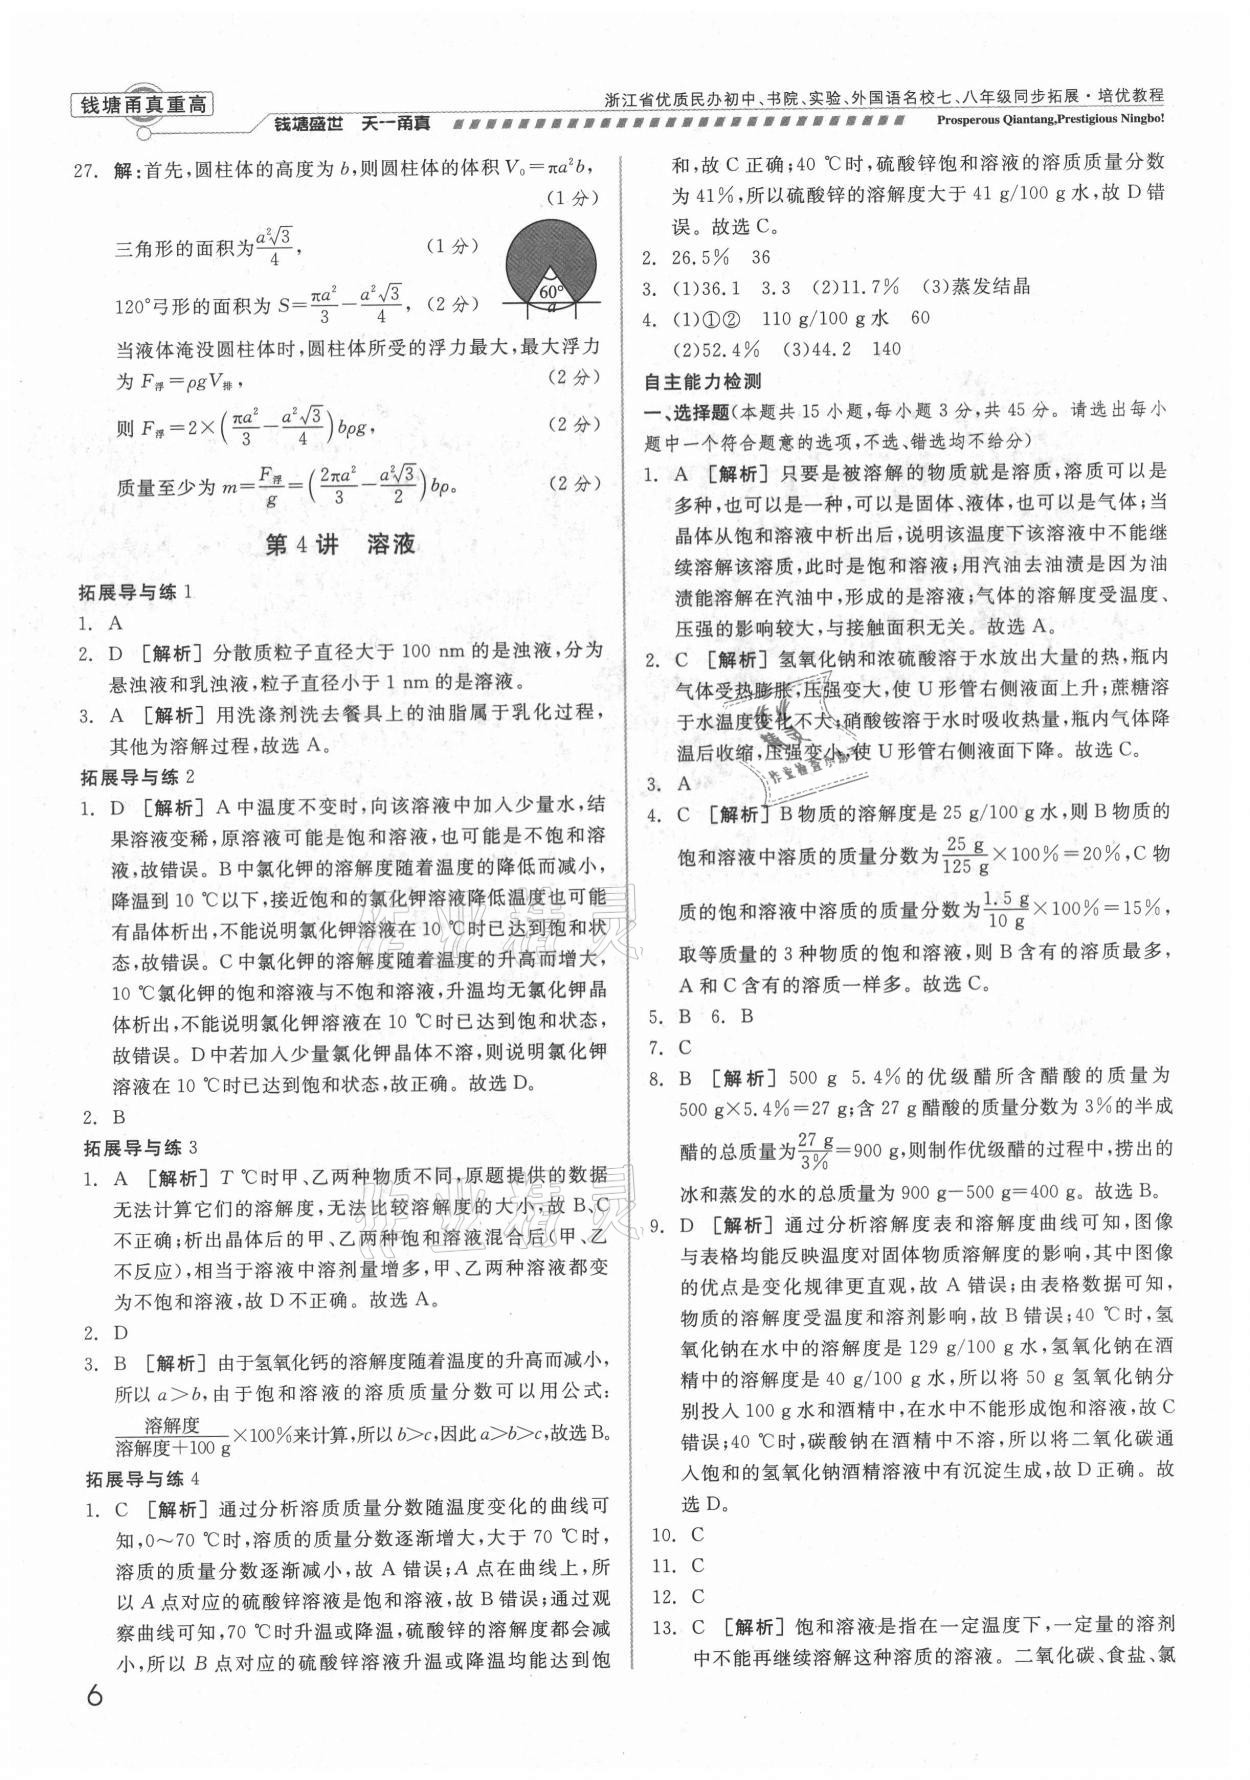 钱塘甬真重高
钱塘盛世 天一甬真
浙江省优质民办初中、书院、实验、外国语名校七、八年级同步拓展·培优教程
Prosperous Qiantang,Prestigious Ningbo!
27. 解:首先,圆柱体的高度为 b,则圆柱体的体积 V₀=πa²b,
(1 分)
三角形的面积为a²√3/4, (1 分)
120°弓形的面积为 S=πa²/3−a²√3/4, (2 分)
60°
a
当液体淹没圆柱体时,圆柱体所受的浮力最大,最大浮力
为 F浮=ρgV排, (2 分)
则 F浮=2×(πa²/3−a²√3/4)bρg, (2 分)
质量至少为 m=F浮/g=(2πa²/3−a²√3/2)bρ。 (2 分)
第 4 讲 溶液
拓展导与练 1
1. A
2. D [解析] 分散质粒子直径大于 100 nm 的是浊液,分为
悬浊液和乳浊液,粒子直径小于 1 nm 的是溶液。
3. A [解析] 用洗涤剂洗去餐具上的油脂属于乳化过程,
其他为溶解过程,故选 A。
拓展导与练 2
1. D [解析] A 中温度不变时,向该溶液中加入少量水,结
果溶液变稀,原溶液可能是饱和溶液,也可能是不饱和溶
液,故错误。B 中氯化钾的溶解度随着温度的降低而减小,
降温到 10 ℃以下,接近饱和的氯化钾溶液降低温度也可能
有晶体析出,不能说明氯化钾溶液在 10 ℃时已达到饱和状
态,故错误。C 中氯化钾的溶解度随着温度的升高而增大,
10 ℃氯化钾的饱和溶液与不饱和溶液,升温均无氯化钾晶
体析出,不能说明氯化钾溶液在 10 ℃时已达到饱和状态,
故错误。D 中若加入少量氯化钾晶体不溶,则说明氯化钾
溶液在 10 ℃时已达到饱和状态,故正确。故选 D。
2. B
拓展导与练 3
1. A [解析] T ℃时甲、乙两种物质不同,原题提供的数据
无法计算它们的溶解度,无法比较溶解度的大小,故 B、C
不正确;析出晶体后的甲、乙两种饱和溶液混合后(甲、乙
不反应),相当于溶液中溶剂量增多,甲、乙两种溶液都变
为不饱和溶液,故 D 不正确。故选 A。
2. D
3. B [解析] 由于氢氧化钙的溶解度随着温度的升高而减小,
所以 a>b,由于饱和溶液的溶质质量分数可以用公式:
溶解度/(溶解度+100 g)×100%来计算,所以 b>c,因此 a>b>c,故选 B。
拓展导与练 4
1. C [解析] 通过分析溶质质量分数随温度变化的曲线可
知,0～70 ℃时,溶质的质量分数逐渐增大,大于 70 ℃时,
溶质的质量分数逐渐减小,故 A 错误;A 点在曲线上,所
以 A 点对应的硫酸锌溶液是饱和溶液,故 B 错误;通过观
察曲线可知,70 ℃时升温或降温,硫酸锌的溶解度都会减
小,所以 B 点对应的硫酸锌溶液升温或降温均能达到饱
6
和,故 C 正确;40 ℃时,硫酸锌饱和溶液的溶质质量分数
为 41%,所以硫酸锌的溶解度大于 41 g/100 g 水,故 D 错
误。故选 C。
2. 26.5% 36
3. (1)36.1 3.3 (2)11.7% (3)蒸发结晶
4. (1)①② 110 g/100 g 水 60
(2)52.4% (3)44.2 140
自主能力检测
一、选择题(本题共 15 小题,每小题 3 分,共 45 分。请选出每小
题中一个符合题意的选项,不选、错选均不给分)
1. A [解析] 只要是被溶解的物质就是溶质,溶质可以是
多种,也可以是一种,可以是固体、液体,也可以是气体;当
晶体从饱和溶液中析出后,说明该温度下该溶液中不能继
续溶解该溶质,此时是饱和溶液;用汽油去油渍是因为油
渍能溶解在汽油中,形成的是溶液;气体的溶解度受温度、
压强的影响较大,与接触面积无关。故选 A。
2. C [解析] 氢氧化钠和浓硫酸溶于水放出大量的热,瓶内
气体受热膨胀,压强变大,使 U 形管右侧液面上升;蔗糖溶
于水温度变化不大;硝酸铵溶于水时吸收热量,瓶内气体降
温后收缩,压强变小,使 U 形管右侧液面下降。故选 C。
3. A
4. C [解析] B 物质的溶解度是 25 g/100 g 水,则 B 物质的
饱和溶液中溶质的质量分数为25 g/125 g×100%=20%,C 物
质的饱和溶液中溶质的质量分数为1.5 g/10 g×100%=15%,
取等质量的 3 种物质的饱和溶液,则 B 含有的溶质最多,
A 和 C 含有的溶质一样多。故选 C。
5. B 6. B
7. C
8. B [解析] 500 g 5.4%的优级醋所含醋酸的质量为
500 g×5.4%=27 g;含 27 g 醋酸的质量分数为 3%的半成
醋的总质量为27 g/3%=900 g,则制作优级醋的过程中,捞出的
冰和蒸发的水的总质量为 900 g−500 g=400 g。故选 B。
9. D [解析] 通过分析溶解度表和溶解度曲线可知,图像
与表格均能反映温度对固体物质溶解度的影响,其中图像
的优点是变化规律更直观,故 A 错误;由表格数据可知,
物质的溶解度受温度和溶剂影响,故 B 错误;40 ℃时,氢
氧化钠在水中的溶解度是 129 g/100 g 水,氢氧化钠在酒
精中的溶解度是 40 g/100 g 水,所以将 50 g 氢氧化钠分
别投入 100 g 水和酒精中,在水中不能形成饱和溶液,故 C
错误;40 ℃时,碳酸钠在酒精中不溶,所以将二氧化碳通
入饱和的氢氧化钠酒精溶液中有沉淀生成,故 D 正确。故
选 D。
10. C
11. C
12. C
13. C [解析] 饱和溶液是指在一定温度下,一定量的溶剂
中不能再继续溶解这种溶质的溶液。二氧化碳、食盐、氯
作业精灵
作业精灵